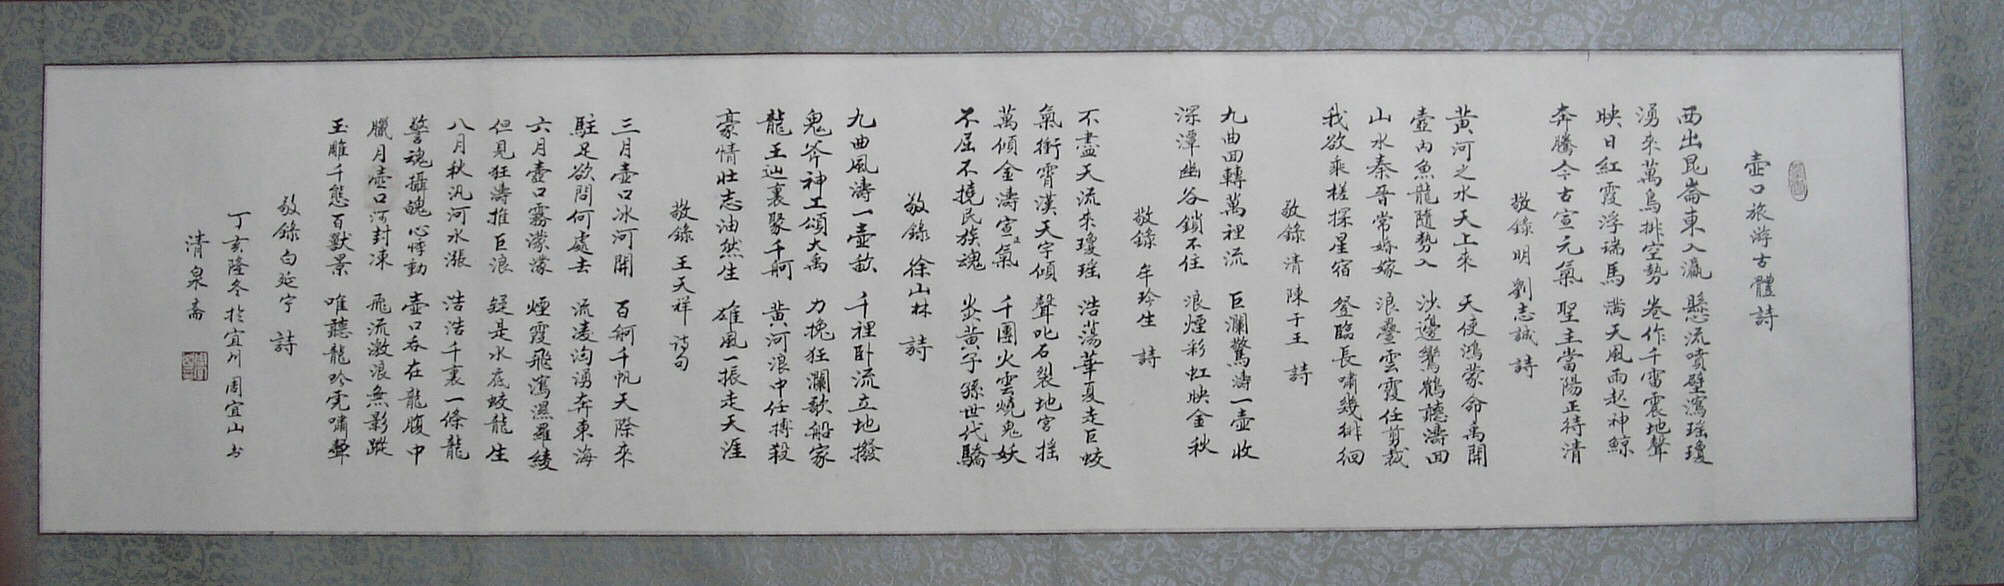 壺口旅游古體詩
西出昆崙東入瀛 懸流噴壁瀉瑤瓊
湧來萬鳥排空勢 卷作千雷震地聲
映日紅霞浮瑞馬 满天風雨起神鯨
奔騰今古宣元氣 聖主當陽正待清
敬錄明 劉志誠 詩
黄河之水天上來 天使鴻蒙命禹開
壺内魚龍隨勢入 沙邊鸞鶴聽濤回
山水秦晉常婚嫁 浪疊雲霞任剪裁
我欲乘槎探星宿 登臨長嘯幾徘徊
敬錄清 陳于王 詩
九曲回轉萬裡流 巨瀾驚濤一壺收
深潭幽谷鎖不住 浪煙彩虹映金秋
敬錄 牟玲生 詩
不盡天流來瓊瑶 浩荡華夏走巨蛟
氣衝霄漢天宇傾 聲叱石裂地宫摇
萬傾金濤宣氣 千團火雲燒鬼妖
不屈不撓民族魂 炎黄子孫世代驕
敬錄 徐山林 詩
九曲風濤一壺歃 千裡卧流立地撥
鬼斧神工頌大禹 力挽狂瀾歌船家
龍王辿裏聚千舸 黄河浪中任搏殺
豪情壮志油然生 雄風一振走天涯
敬錄 王天祥 诗句
三月壺口冰河開 百舸千帆天際來
駐足欲問何處去 流凌洶湧奔東海
六月壺口霧濛濛 煙霞飛瀉濕羅綾
但見狂濤推巨浪 疑是水底蛟龍生
八月秋汛河水漲 浩浩千裏一條龍
驚魂攝魄心悸動 壺口吞在龍腹中
臘月壺口河封凍 飛流激浪無影蹤
玉雕千態百獸景 唯聽龍吟虎嘯聲
敬錄 白延宁 詩
丁亥隆冬於宜川 周宜山 书
清泉斋